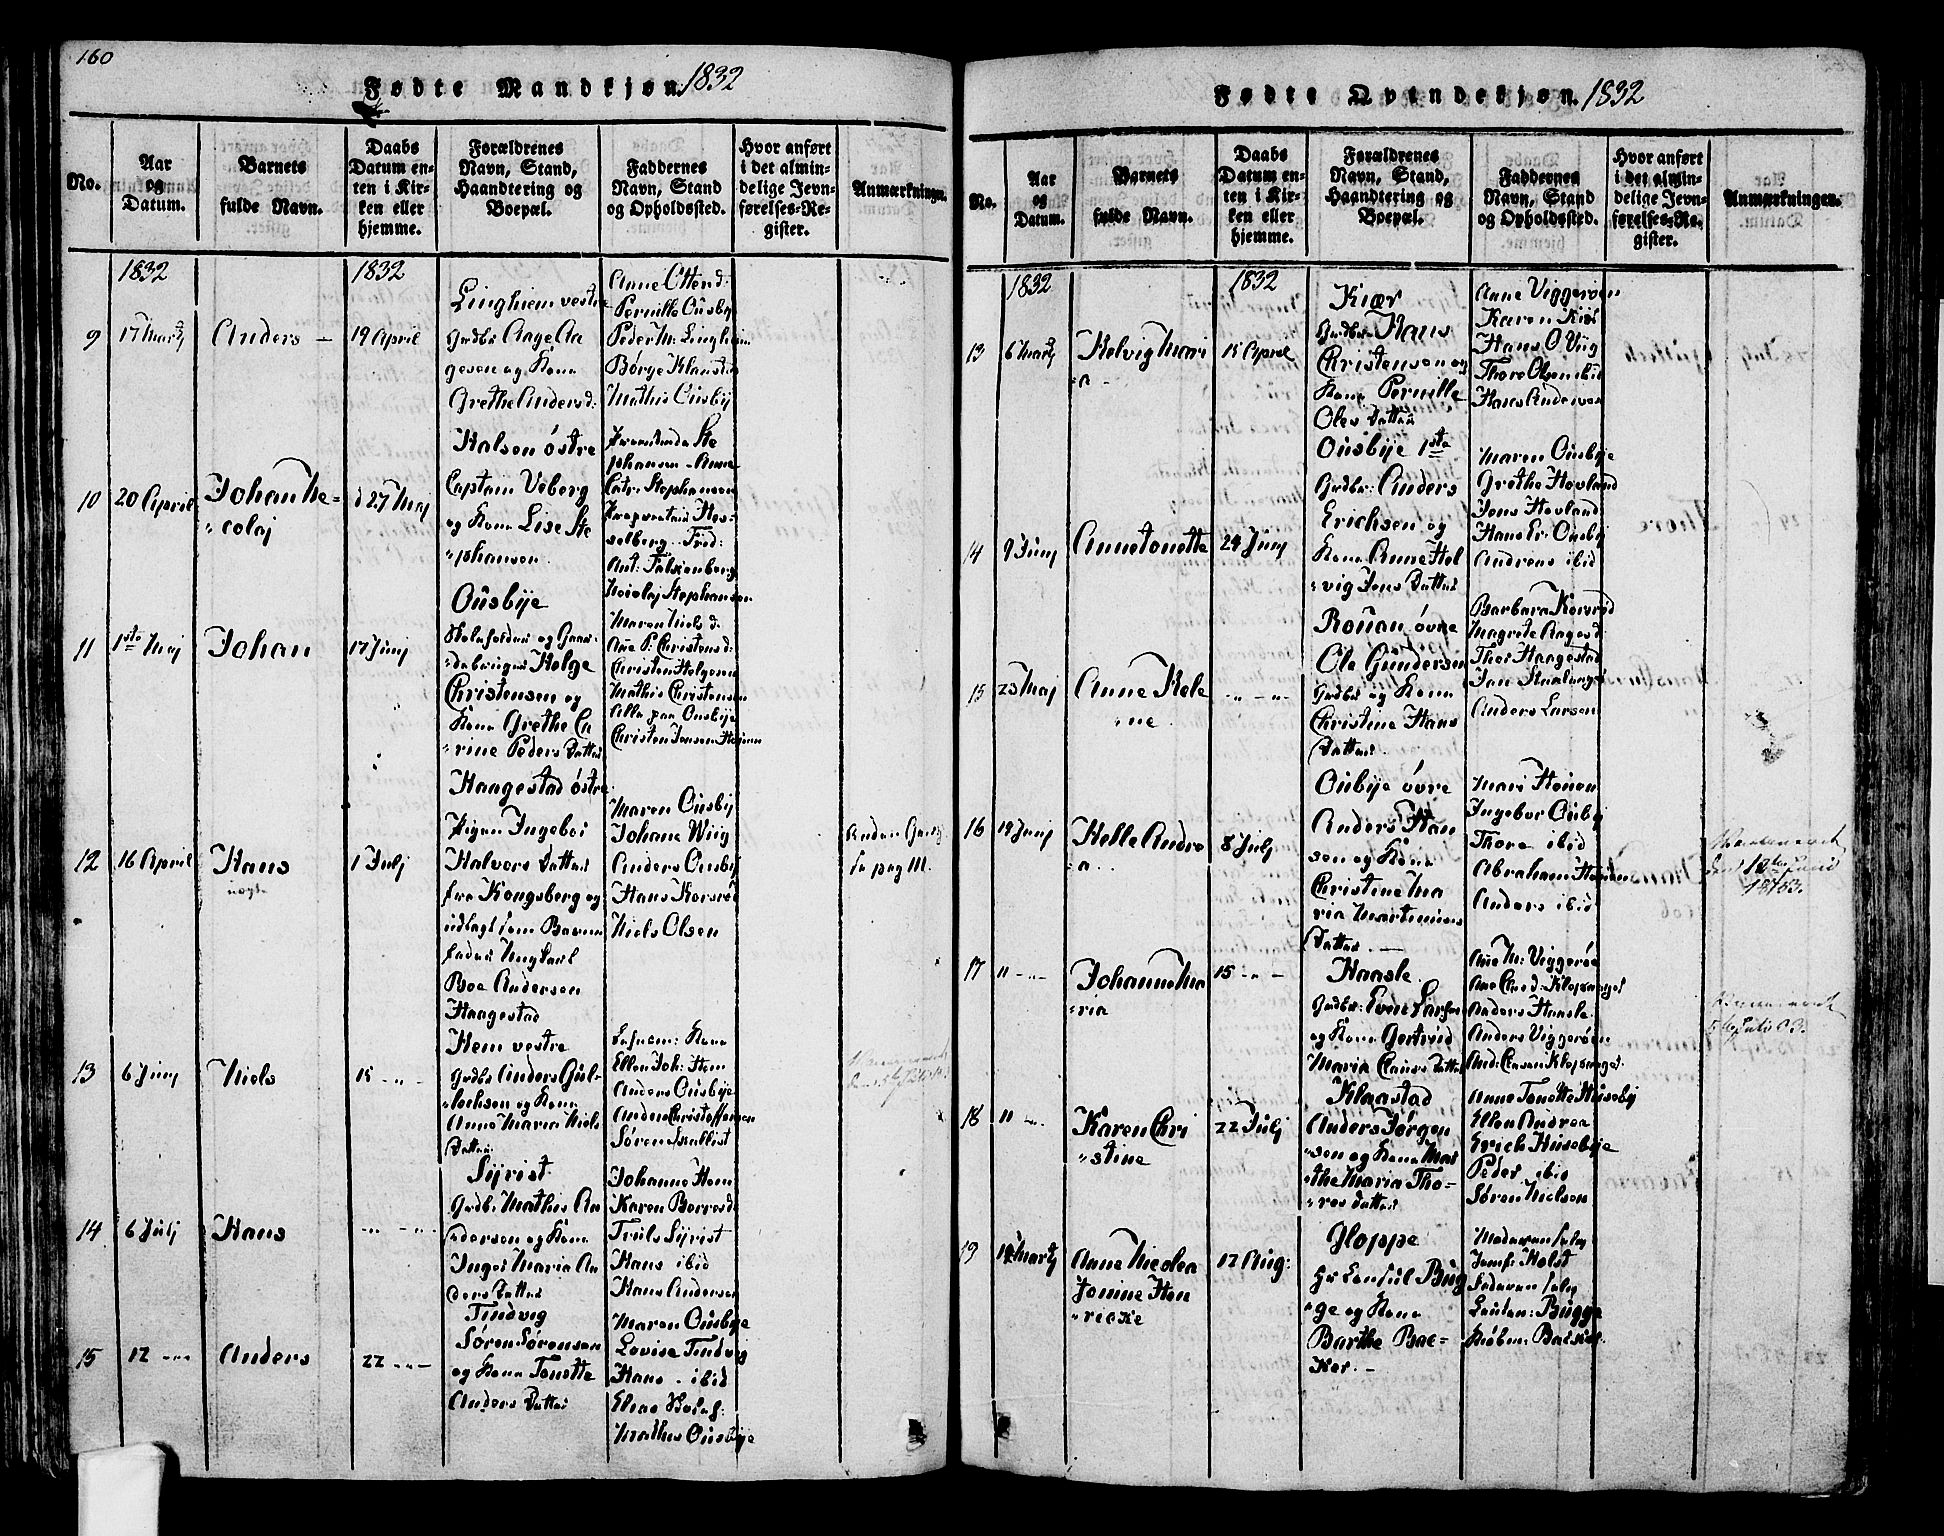 160
Fødte Mandkjøn. 1832
No.
Aar
og
Datum.
Barnets
fulde Navn.
Daabs
Datum en-
ten i Kir-
ken eller
hjemme.
Forældrenes
Navn, Stand,
Haandtering og
Boepæl.
Faddernes
Navn, Stand
og Opholdssted.
Hvor anført
i det almin-
delige Jevn-
førelses-Re-
gister.
Anmærkninger.
1832
1832
9
17 Martj
Anders –
19 April
Linghiem vestre
Grdbr Aage Aa
gesen og Kone
Grethe Andersd:
Anne Ottersd:
Pernille Ousby
Peder M: Linghiem
Børge Klausd:
Mathis Ousbÿ
10
20 April
Johan Ni-
"colaj
d 27 Maj
Halsen östre
Captain Veberg
og Kone Lise Ste
"phansen
phansen – Anne
Catr. Stephansen
selberg. Fred:
Ant: Falkenberg
Nicolaj Stephansen
11
1ste Maj
Johan
17 Junj
Ousbÿe
Skoleholder og Gaar-
Helge
Christensen og
Kone Grethe Ca
"rine Peders Datter
Maren Niels d.
Ane P: Christensd:
Christen Helgesen
Mathis Christensen
Alle paa Ousbÿe
Christen Jensen
12
16 April
Hans
uægte
1 Julj
Haagestad östre
Pigen Ingebor
Halvors Datter
fra Kongsberg og
udlagt som Barne
fader Ungkarl
Boe Andersen
Haagestad
Maren Ousbÿ
Johane Wiig
Anders Ousbÿ
Hans Korsrød
Niels Olsen
Anden Gang
se pag 111.
13
6 Junj
Niels
15 – „ –
Hem vestre
Grdbr Anders Gul-
"lichsen og Kone
Anne Maria Niels
Datter
Kone
Ellen Joh: Hem
Anders Ousbÿe
Anders Christoffersen
Søren Skallist
14
6 Julj
Hans
„ – „ –
Sÿrist
Grdbr Mathis An
"dersen og Kone
Inger Maria An
ders Datter
Johanne Hem
Karen Borresd
Truls Sÿrist
Hans ibid
Hans Andersen
15
12 – „ –
Anders
22 – „ –
Tindvig
Søren Sørensen
og Kone Tonette
Anders Datter
Maren Ousbÿe
Lovise Tindvig
Hans – ibid
Mathis Ousbÿe
Fødte Qvindekjøn. 1832
No.
Aar
og
Datum.
Barnets
fulde Navn.
Daabs
Datum en-
ten i Kir-
ken eller
hjemme.
Forældrenes
Navn, Stand,
Haandtering og
Boepæl.
Faddernes
Navn, Stand
og Opholdssted.
Hvor anført
i det almin-
delige Jevn-
førelses-Re-
gister.
Anmærkninger.
1832
1832
13
6 Martj
Helvig Mari
"a –
15 April
Kiær
Grdbr Hans
Christensen og
Kone Pernille
Oles Datter
Anne Viggersen
Karen Kiöl
Hans O Viig
Thore Olsen ibid
Hans Andersen
14
9 Junj
Anne Tonette
24 Junj
Ousbÿe 1ste
Grdbr: Anders
Erichsen og
Kone Anne Hel
"vig Jens Datter
Maren Ousbÿe
Grethe Hovland
Jens Hovland
Hans Er: Ousbÿ
Andreas ibid
15
23 Maj
Anne Hele
"ne
„ – „ –
Rouan övre
Ole Gundersen
Grdbr og Kone
Christine Hans
Datter
Barbara Korsrød
Magrete Aagesd:
Thor Haagestad
Anders Larsen
16
19 Junj
Helle Andre
"a –
8 Julj
Ousbÿe övre
Anders Han
sen og Kone
Christine Ma
ria Martinius
Datter –
Mari Houen
Ingebor Ousby
Thore ibid
Abraham
Anders ibid
17
„ – „ –
Johanne Ma
"ria
15 – „ –
Haasle
Grdbr: Even Larsen
og Kone Gertrud
Maria Claus Datter
Ane M: Viggersø
Anders Haasle
Anders Viggersøe
18
„ – „
Karen Chri
"stine
22 Julj
Klaastad
Anders Jørgen
"sen og Kone Mar
"the Maria Tho-
"res datter
Anne Tonette Huseby
Ellen Andrea
Erich Husebÿe
Peder ibid
Søren Nielsen
19
14 Martj
Anne Nicolea
Jonine Hen
"ricke
12 Aug:
Floppe
Hr Consul Bug
"ge og Kone
Barthe Bac-
ker. –
Jomfr Holst
Leutn: Bugge